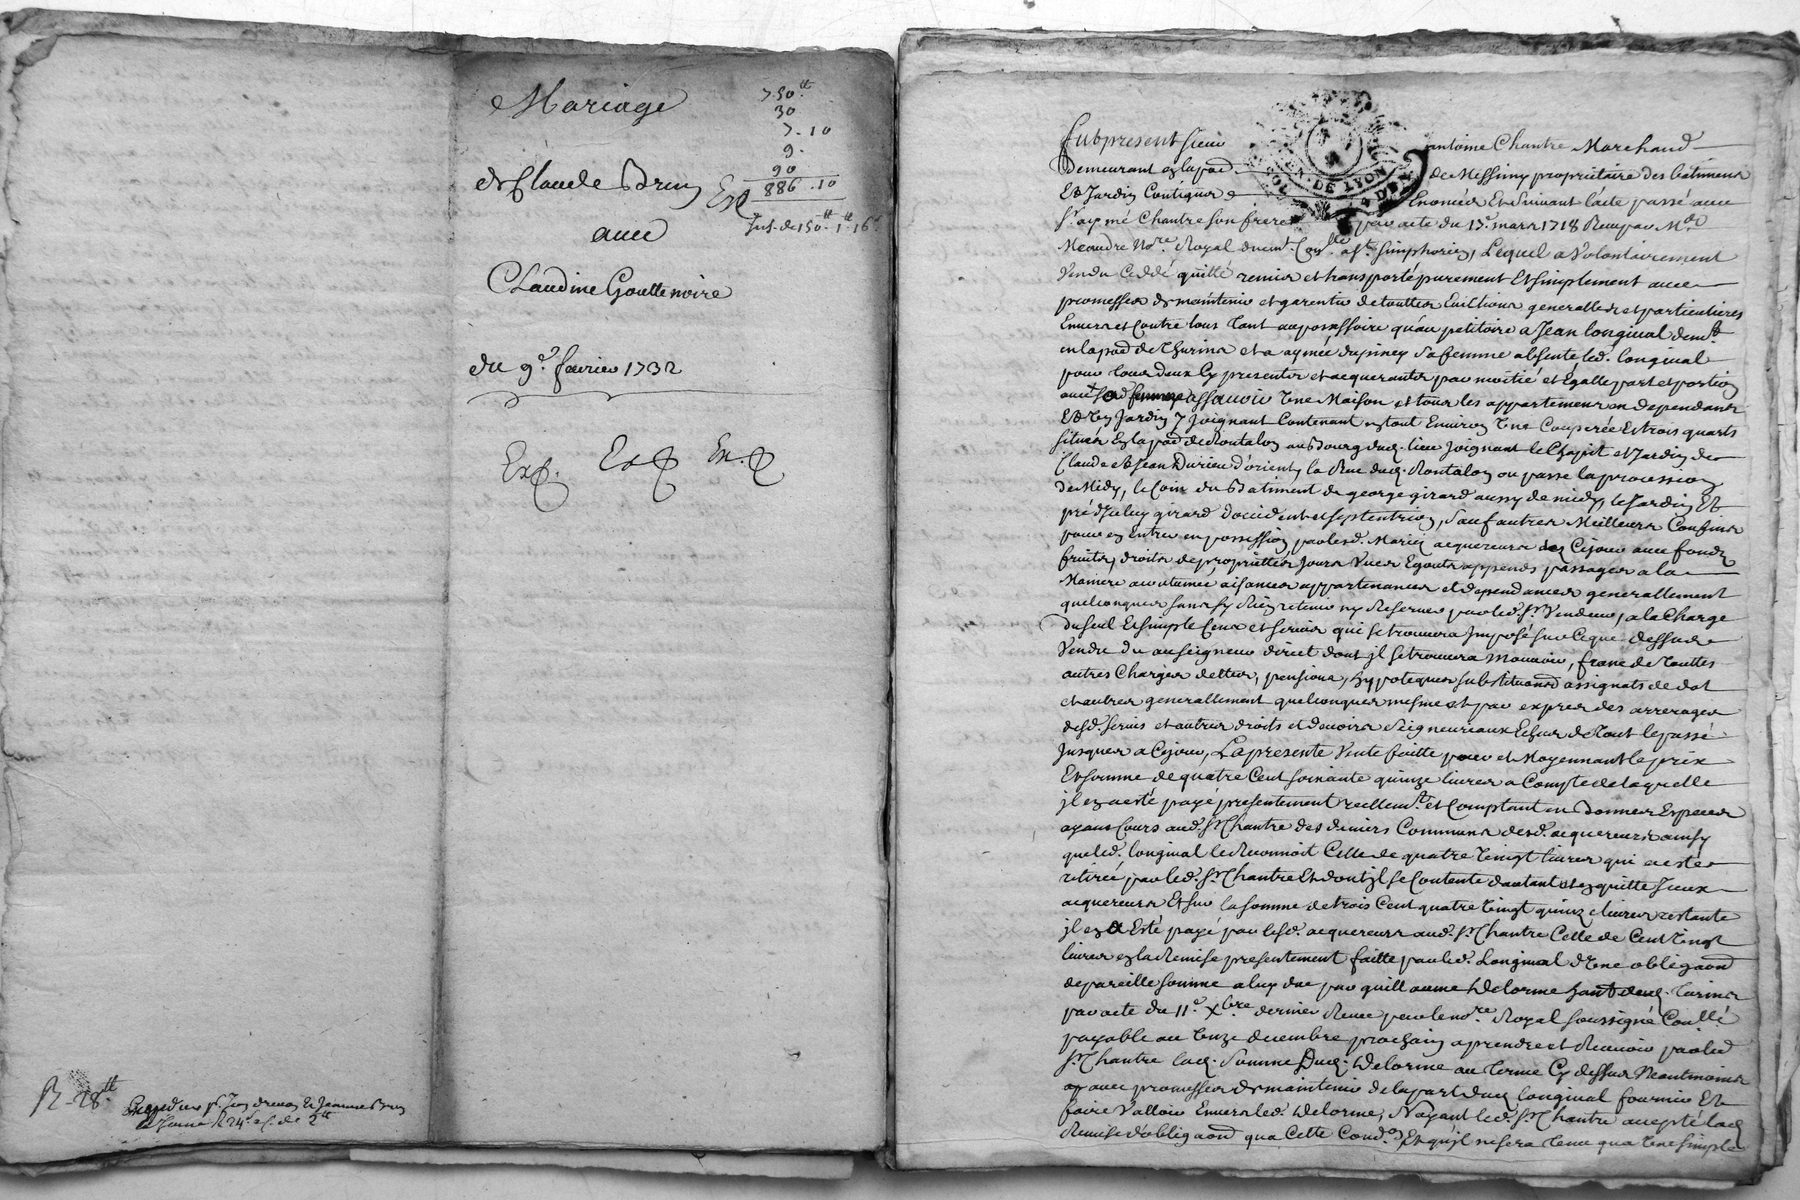 Mariage
de Claude Brun
avec
Claudine Gouttenoire
du 9e. fevrier 1732
750 tt
30
7-10
9-
90
886.10
Exp
Exp. Exp Exp
R-28 tt
Jean & Jeanne Brun
fut present sieur antoine Chantre Marchand
demeurant en la par. de Messimy proprietaire des bâtiment
Et Jardin Contigue Enoncés Et suivant lacte passé avec
Sr. aymé Chantre son frere par acte du 15e. mars 1718 Receu par Me.
Meaudre Nore. Royal St. simphorien, Lequel a Volontairement
Vendu Ceddé quitté remis et transporté purement Et simplement avec
promesses de maintenir et garentir de touttes Evictions generalles et particulieres
Envers et Contre tous tant au possessoire qu'au petitoire a Jean longival demt.
en la par de Thurins et a aymée dupiney sa femme absente led. longival
pour tous deux Cy presenter et acquerantes par moitié et Egalle part et portion
assavoir Une Maison et tous les appartements en dependants
Et Un Jardin y Joignant Contenant en tout Environ Une Couperée Et trois quarts
situés En la par de Rontalon au Bourg dud. lieu Joignant le Chapit et Jardin de
Claude et Jean Durieu d'orient, la Rue dud. Rontalon ou passe la procession
de Midy, le Coin du Batiment de george girard aussy de midy, le Jardin Et
pré d'Iceluy girard d'occident et septentrion, sauf autres Meilleurs Confins
pour en Entrer en possession par lesd. Mariés acquereurs dez Cejour avec fonds
fruits, droits de proprietter Jours Vues Egouts appends passages a la
Maniere acoutumée, aisances appartenances et dependances generallement
quelconques sans sy Rien retenir ny Reserver par led. Sr. Vendeur, a la Charge
du seul Et simple Cens et servis qui se trouvera Imposé sur Ceque dessus
Vendu du au seigneur direct dont jl se trouvera Mouvoir, franc de touttes
autres Charges dettes, pensions, hypoteques substitutions assignats de dot
et autres generallement quelconques mesme et par exprez des arrerages
desd. servis et autres droits et devoirs seigneuriaux Echus de tout le passé
Jusques a Cejour, La presente Vente faitte pour et Moyennant le prix
Et somme de quatre Cent soixante quinze livres a Compte de laquelle
jl en a eté payé presentement reellemt. et Comptant en Bonnes Especes
ayant Cours aud. Sr Chantre des deniers Communs desd. acquereurs ainsy
que led. longival le Reconnoit Celle de quatre Vingt livres qui a eté
retirée par led. Sr. Chantre Et dont jl se Contente dautant Et en quitte Iceux
acquereurs Et sur la somme de trois Cent quatre Vingt quinze livres restante
jl en a Eté payé par lesd. acquereurs aud. Sr. Chantre Celle de Cent Vingt
livres en la Remise presentement faitte par led. Longival d'Une obligaon
de pareille somme a luy due par guillaume Delorme dud. Turins
par acte du 11e Xbre dernier Receu par le nore. Royal soussigné
payable au onze decembre prochain a prendre et Recevoir par led
Sr. Chantre lad. somme dud. Delorme au terme Cy dessus Neantmoins
avec promesses de maintenir de la part dud. longival fournir Et
faire Valloir Envers led. Delorme, N'ayant led. Sr. Chantre accepté lad
Remise d'obligaon qua Cette Condon Et qu'jl ne sera tenu qua Une simple